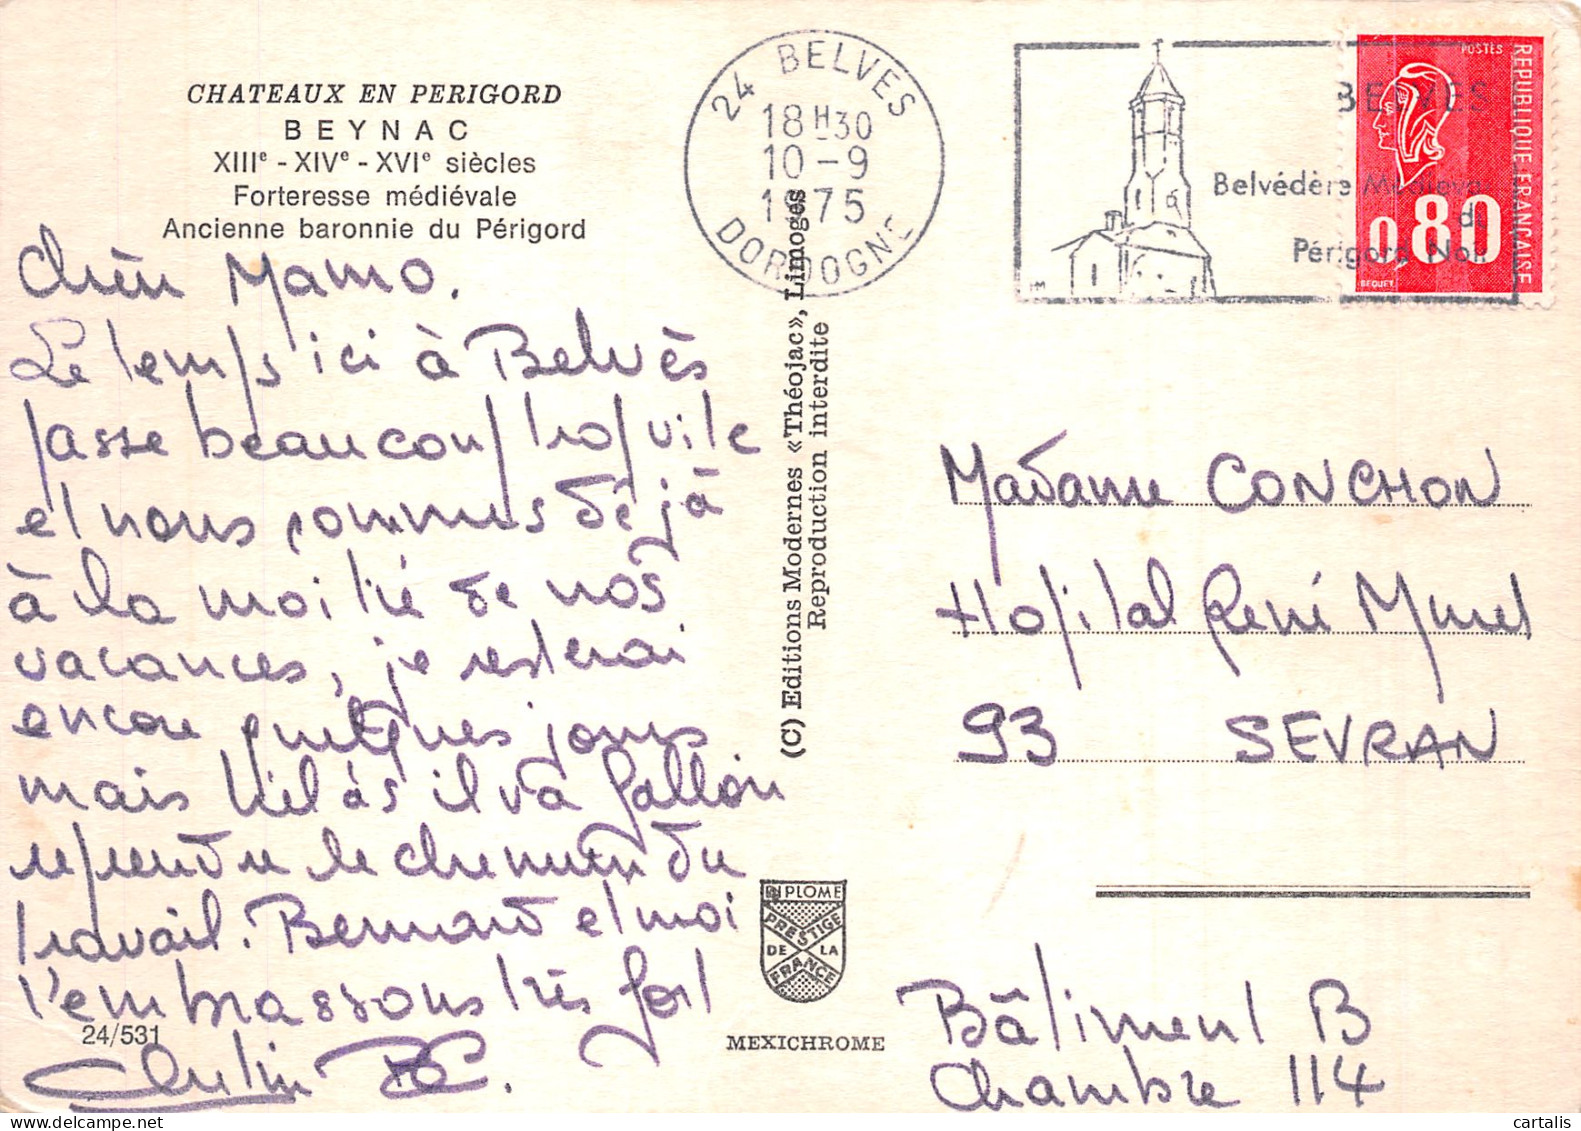 CHATEAUX EN PERIGORD
BEYNAC
XIIIe - XIVe - XVIe siècles
Forteresse médiévale
Ancienne baronnie du Périgord
Chère Mamo.
Le temps ici à Belvès
passe beaucoup trop vite
et nous sommes déjà
à la moitié de nos
vacances, je resterai
encore quelques jours
mais hélas il va falloir
reprendre le chemin du
travail. Bernard et moi
t'embrassons très fort
24/531
24 BELVES
18H30
10-9
1975
DORDOGNE
BELVES
Belvédère Médiéval
du
Périgord Noir
HM
POSTES
REPUBLIQUE FRANÇAISE
0,80
BEQUET
(C) Editions Modernes «Théojac», Limoges
Reproduction interdite
DIPLOME
PRESTIGE
DE LA
FRANCE
MEXICHROME
Madame CONCHON
Hopital René Muret
93 SEVRAN
Bâtiment B
Chambre 114
cartalis